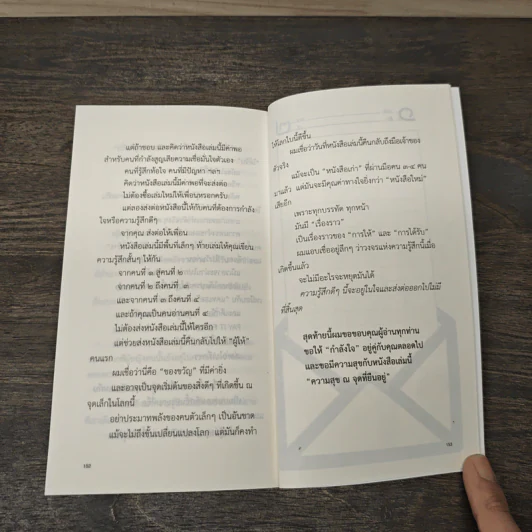 แต่ถ้าชอบ และคิดว่าหนังสือเล่มนี้มีค่าพอ
สำหรับคนที่กำลังสูญเสียความเชื่อมั่นในตัวเอง
คนที่รู้สึกท้อใจ คนที่มีปัญหา ฯลฯ
คิดว่าหนังสือเล่มนี้มีค่าพอที่จะส่งต่อ
ไม่ต้องซื้อเล่มใหม่ให้เพื่อนหรอกครับ
แต่ลองส่งต่อหนังสือนี้ให้กับคนที่ต้องการกำลัง
ใจหรือความรู้สึกดีๆ
จากคุณ ส่งต่อให้เพื่อน
หนังสือเล่มนี้มีพื้นที่เล็กๆ ท้ายเล่มให้คุณเขียน
ความรู้สึกสั้นๆ ให้กัน
จากคนที่ ๑ สู่คนที่ ๒
จากคนที่ ๒ ถึงคนที่ ๓
และจากคนที่ ๓ ถึงคนที่ ๔
และถ้าคุณเป็นคนอ่านคนที่ ๔
ไม่ต้องส่งหนังสือเล่มนี้ให้ใครอีก
แต่ช่วยส่งหนังสือเล่มนี้คืนกลับไปให้ "ผู้ให้"
คนแรก
ผมเชื่อว่านี่คือ "ของขวัญ" ที่มีค่ายิ่ง
และอาจเป็นจุดเริ่มต้นของสิ่งดีๆ ที่เกิดขึ้น ณ
จุดเล็กในโลกนี้
อย่าประมาทพลังของคนตัวเล็กๆ เป็นอันขาด
แม้จะไม่ถึงขั้นเปลี่ยนแปลงโลก แต่มันก็คงทำ
152
ให้โลกใบนี้ดีขึ้น
ผมเชื่อว่าวันที่หนังสือเล่มนี้คืนกลับถึงมือเจ้าของ
ตัวจริง
แม้จะเป็น "หนังสือเก่า" ที่ผ่านมือคน ๓-๔ คน
มาแล้ว แต่มันจะมีคุณค่าทางใจยิ่งกว่า "หนังสือใหม่"
เสียอีก
เพราะทุกบรรทัด ทุกหน้า
มันมี "เรื่องราว"
เป็นเรื่องราวของ "การให้" และ "การได้รับ"
ผมแอบเชื่ออยู่ลึกๆ ว่าวงจรแห่งความรู้สึกนี้เมื่อ
เกิดขึ้นแล้ว
จะไม่มีอะไรจะหยุดมันได้
ความรู้สึกดีๆ นี้จะอยู่ในใจและส่งต่อออกไปไม่มี
ที่สิ้นสุด
สุดท้ายนี้ผมขอขอบคุณผู้อ่านทุกท่าน
ขอให้ "กำลังใจ" อยู่คู่กับคุณตลอดไป
และขอมีความสุขกับหนังสือเล่มนี้
"ความสุข ณ จุดที่ยืนอยู่"
153